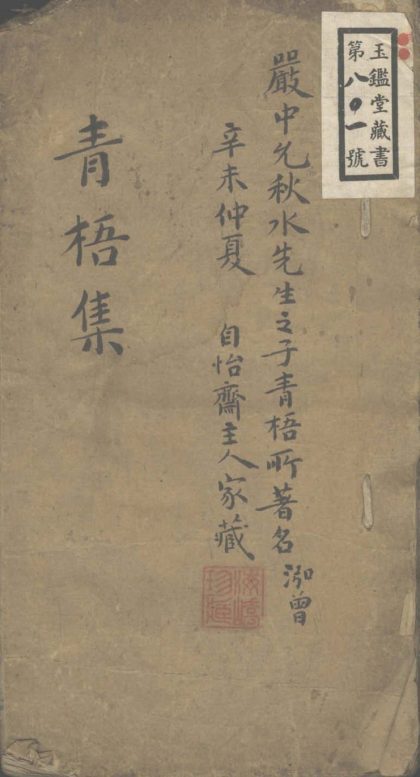 玉鑑堂藏書
第八〇一號
嚴中允秋水先生之子青梧所著名泓曾
辛未仲夏 自怡齋主人家藏
青梧集